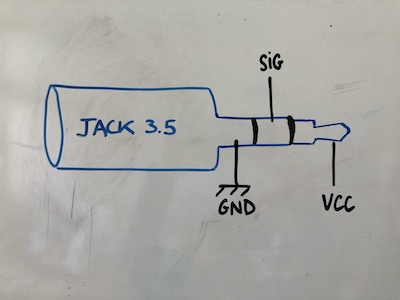 SiG
JACK 3.5
GND
VCC